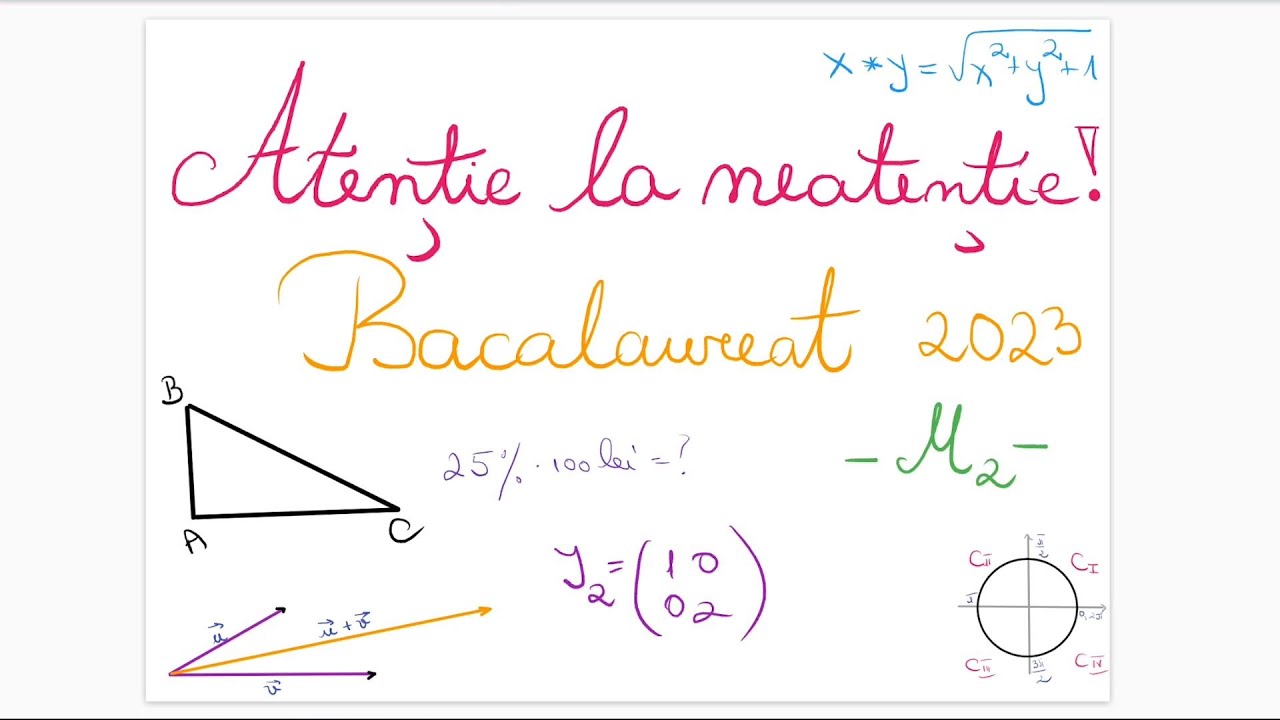 x * y = √x²+y²+1
Atenție la neatenție!
Bacalaureat 2023
- M₂ -
B
A
C
25% · 100 lei = ?
y₂ = (1 0
0 2)
u⃗
u⃗ + v⃗
v⃗
π/2
C II
C I
π
0, 2π
C III
3π/2
C IV